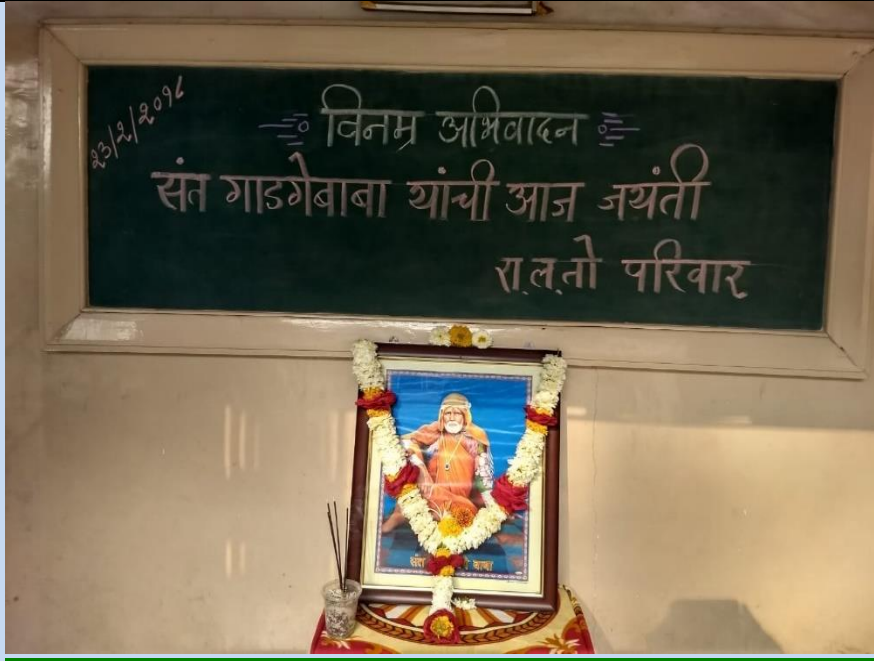 २३/२/२०१८
विनम्र अभिवादन
संत गाडगेबाबा यांची आज जयंती
रा.ल.तो परिवार
संत
बाबा